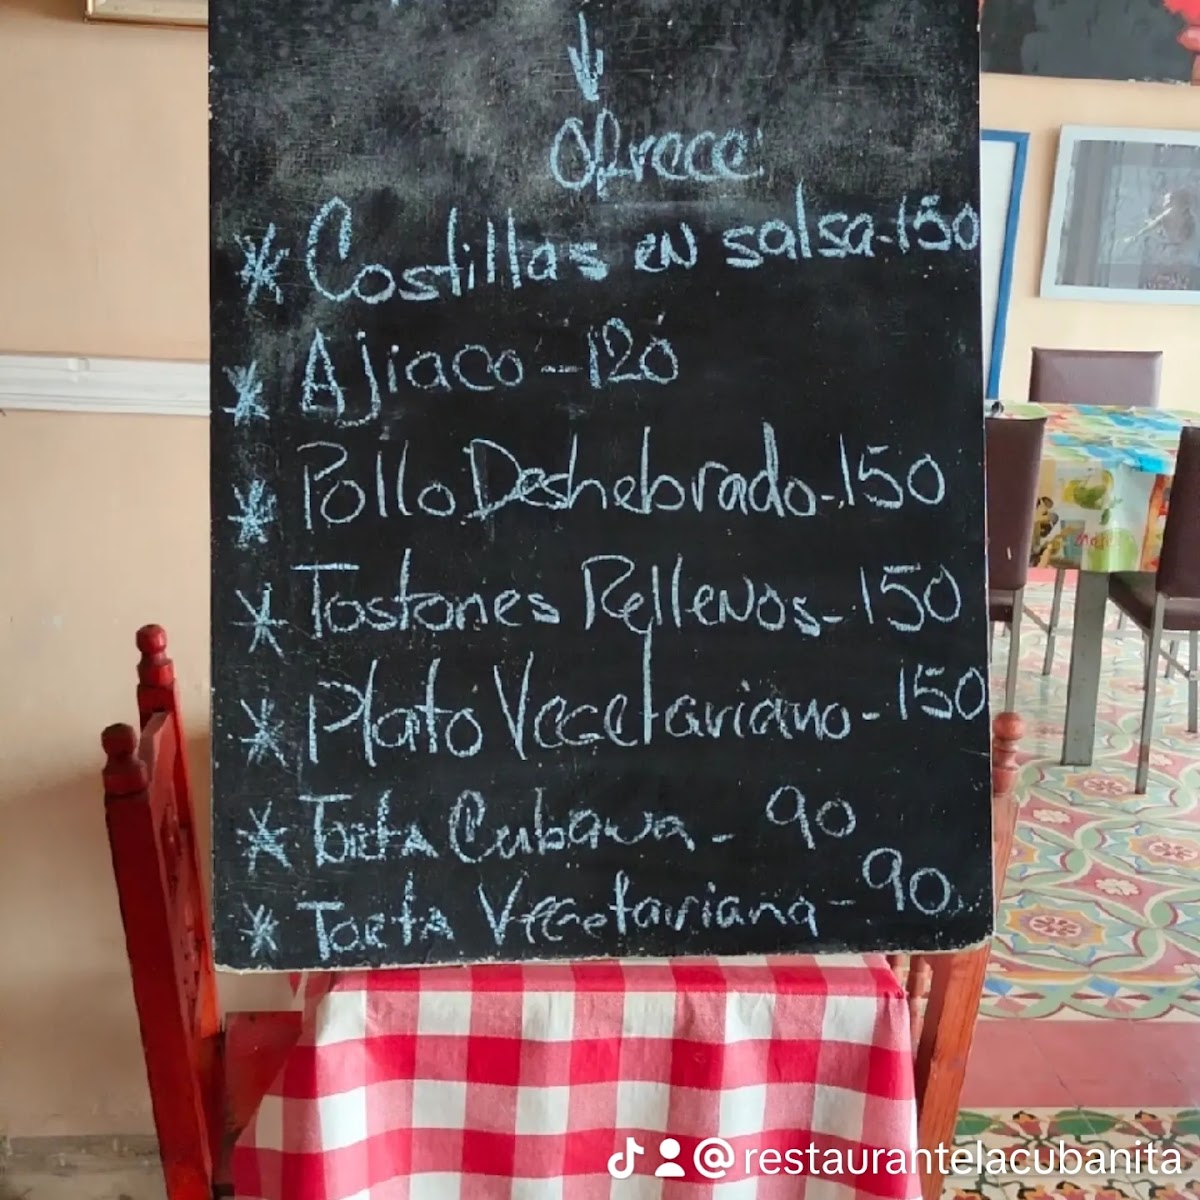 Ofrece:
* Costillas en salsa-150
* Ajiaco - 120
* Pollo Deshebrado-150
* Tostones Rellenos-150
* Plato Vegetariano - 150
* Torta Cubana - 90
* Torta Vegetariana - 90
@restaurantelacubanita